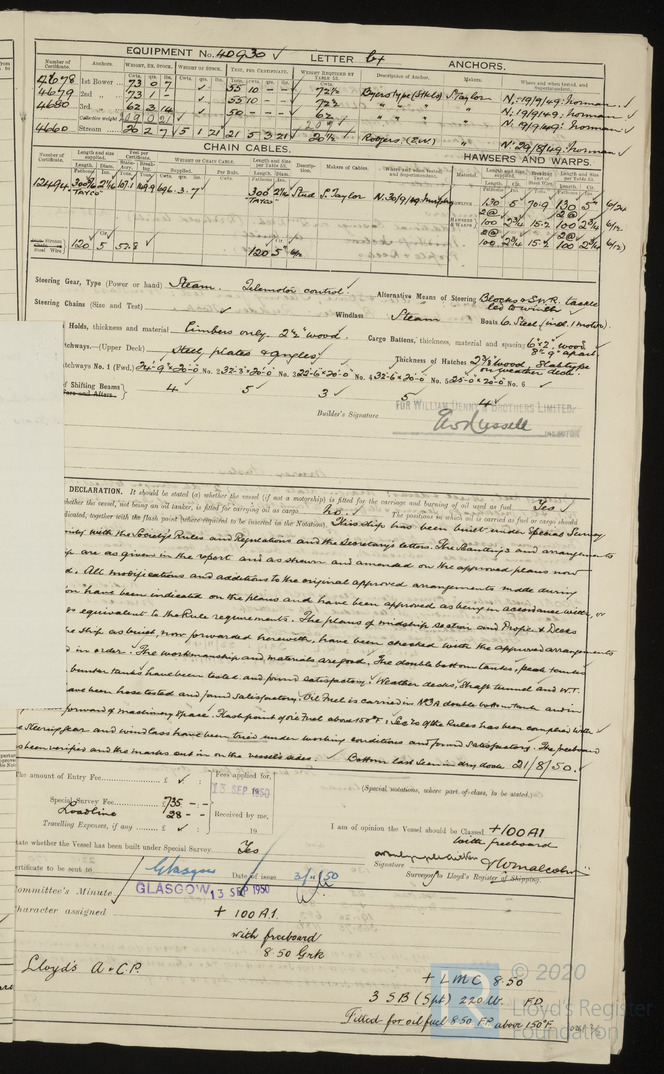 EQUIPMENT No. 40930 ✓ LETTER ANCHORS.
Number of Certificate. Anchors. WEIGHT, EX. STOCK. WEIGHT OF STOCK. TEST, PER CERTIFICATE. WEIGHT REQUIRED BY TABLE 53. Description of Anchor. Makers. Where and when tested, and Superintendent.
4678 1st Bower 73 0 7 ✓ 55 10 - - ✓ 72½ Byers type (Stkls) S. Taylor N: 19/9/49: Norman ✓
4679 2nd " 73 1 - ✓ 55 10 - - 72½ " " " " N: 19/9/49: Norman ✓
4680 3rd " 62 3 14 ✓ 50 - - - ✓ 62 " " " " N: 19/9/49: Norman ✓
Collective weight 209 0 21
4660 Stream 26 2 7 ✓ 5 1 21 21 5 3 21 ✓ 20½ Rodgers, (I.W.) " N: 29/8/49: Norman ✓
CHAIN CABLES. HAWSERS AND WARPS.
Number of Certificate. Length and size supplied. Test per Certificate. WEIGHT OF CHAIN CABLE. Length and size per Table 53. Description. Makers of Cables. Where and when tested, and Superintendent. Material.
Stud S. Taylor N. 30/9/49
130 5 70.9 130 5" 6/24
2@ 2@
100 2¾ 15.2 100 2¾ 6/12
2@ 2@
100 2¾ 15.2 100 2¾ 6/12
Steel Wire 120 5 52.8 ✓ 120 5
Steering Gear, Type (Power or hand) Steam. Telemotor control. Alternative Means of Steering Blocks & S.W.R. tackle led to winch
Steering Chains (Size and Test) Windlass Steam Boats 6 Steel (incl. 1 motor).
Holds, thickness and material Limbers only. 2½" wood. Cargo Battens, thickness, material and spacing 6" x 2" wood 8"-9" apart
tchways.—(Upper Deck) Steel, plates & angles ✓ Thickness of Hatches 2⅜" wood, Slab type on weather deck.
tchways No. 1 (Fwd.) 24'-9" x 20'-0 No. 2 32'-3" x 20'-0 No. 3 22'-6" x 20'-0 No. 4 32'-6" x 20'-0 No. 5 25'-0 x 20'-0 No. 6 ✓
of Shifting Beams 4 5 3 5 4 ✓
FOR WILLIAM DENNY & BROTHERS LIMITED.
Builder's Signature Russell
DIRECTOR
DECLARATION. It should be stated (a) whether the vessel (if not a motorship) is fitted for the carriage and burning of oil used as fuel Yes ✓
hether the vessel, not being an oil tanker, is fitted for carrying oil as cargo No. ✓ The positions in which oil is carried as fuel or cargo should
dicated, together with the flash point (where required to be inserted in the Notation). This ship has been built under Special Survey
ity with the Society's Rules and Regulations and the Secretary's letters. The Scantlings and arrangements
ip are as given in the report and as shewn and amended on the approved plans now
d. All modifications and additions to the original approved arrangements made during
on have been indicated on the plans and have been approved as being in accordance with, or
equivalent to the Rule requirements. The plans of midship section and Profile & Decks
e ship as built, now forwarded herewith, have been checked with the approved arrangements
d in order. The workmanship and materials are good. The double bottom tanks, peak tanks
bunker tanks have been tested and found satisfactory. Weather decks, shaft tunnel and W.T.
ave been hose tested and found satisfactory. Oil Fuel is carried in No 3A double bottom tank and in
forward of machinery space. Flash point of oil fuel above 150°F. Sec 20 of the Rules has been complied with
e Steering gear and windlass have been tried under working conditions and found satisfactory. The freeboard
s been verified and the marks cut in on the vessel's sides. ✓ Bottom last seen in dry dock 21/8/50.
he amount of Entry Fee £ ✓ Fees applied for, (Special notations, where part of class, to be stated.)
13 SEP 1950
Special Survey Fee £ 735 - : -
Loadline 28 - - Received by me,
Travelling Expenses, if any £ ✓ : 19
I am of opinion the Vessel should be Classed +100A1
with freeboard
tate whether the Vessel has been built under Special Survey Yes
ertificate to be sent to Glasgow Date of issue 3/11/50 Signature J.W. Malcolm
Surveyor to Lloyd's Register of Shipping.
ommittee's Minute GLASGOW 13 SEP 1950
haracter assigned + 100 A.1.
with freeboard
8.50 Grk
Lloyds A & C.P.
+ LMC 8.50
3 SB (Spt) 220 W. FD
Fitted for oil fuel 8.50 F.P. above 150°F.
© 2020
Lloyd's Register
Foundation